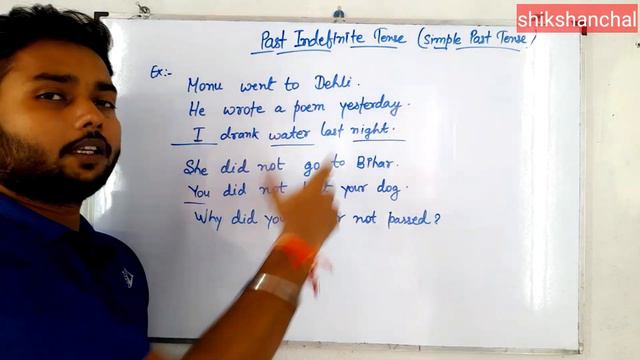 shikshanchal
Past Indefinite Tense (Simple Past Tense)
Ex:-
Monu went to Dehli.
He wrote a poem yesterday.
I drank water last night.
She did not go to Bihar.
You did not your dog.
Why did not passed?